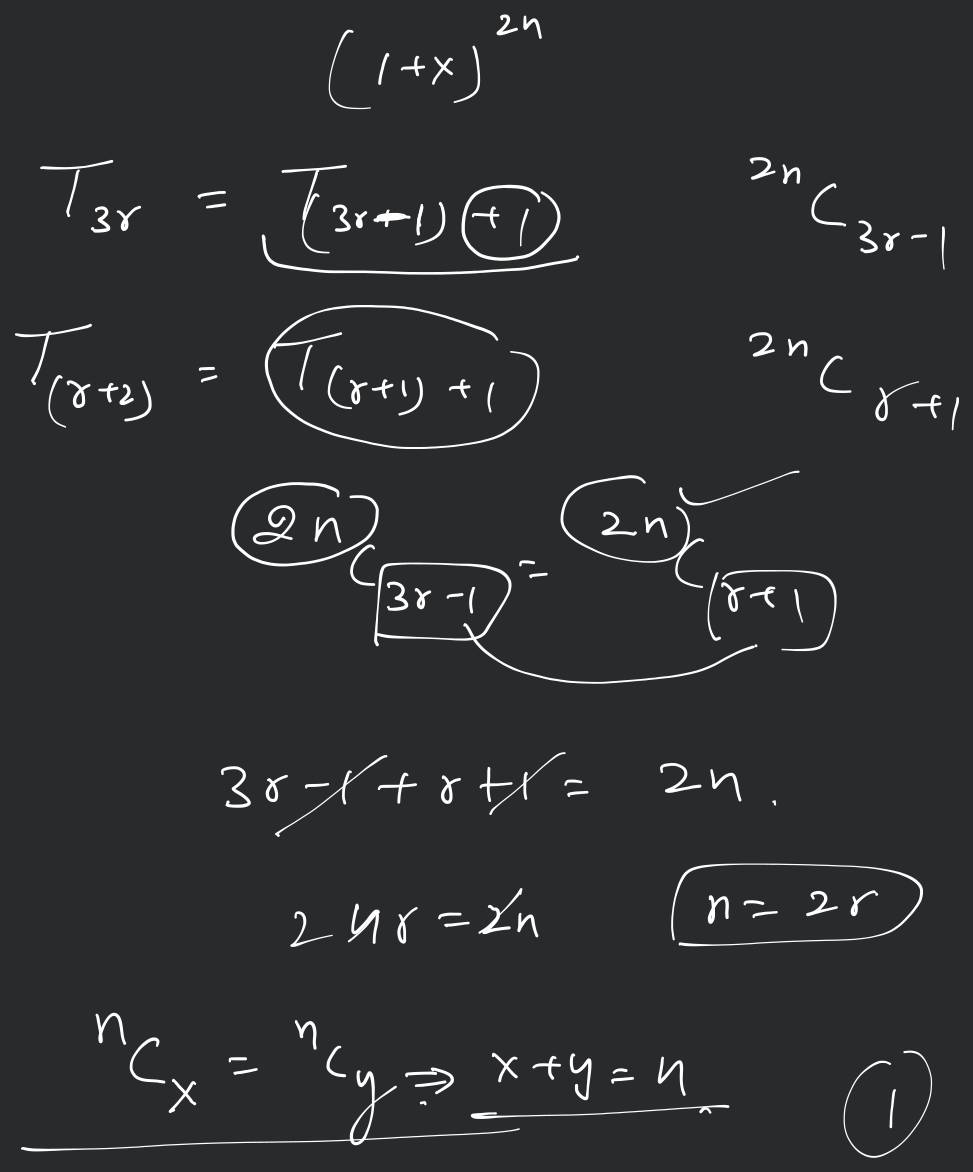 (1+x)^{2n}
T_{3r} = T_{(3r-1)+1} ^{2n}C_{3r-1}
T_{(r+2)} = T_{(r+1)+1} ^{2n}C_{r+1}
^{2n}C_{3r-1} = ^{2n}C_{r+1}
3r-1+r+1 = 2n.
2 4r = 2n n = 2r
^{n}C_{x} = ^{n}C_{y} ⇒ x+y = n 1